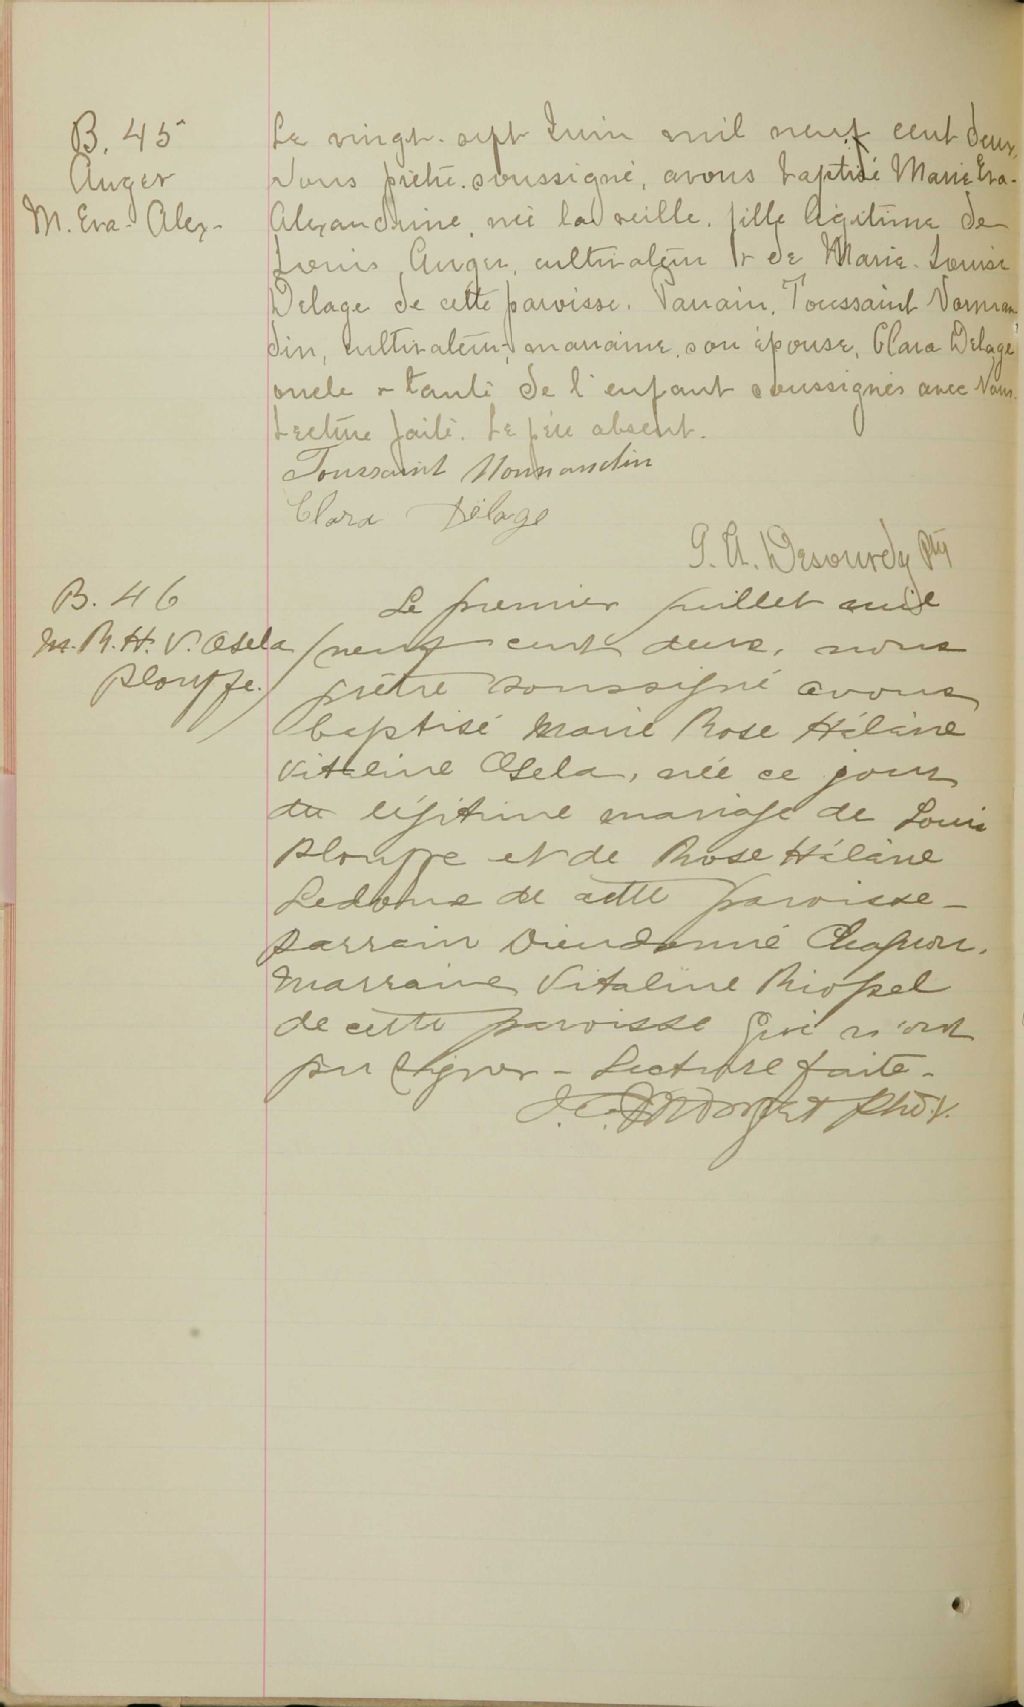 B. 45
Auger
M. Eva-Alex-
Le vingt-sept Juin mil neuf cent deux,
Nous prêtre soussigné, avons baptisé Marie Eva-
Alexandrine, née la veille, fille légitime de
Louis Auger, cultivateur & de Marie-Louise
Delage de cette paroisse. Parrain, Toussaint Norman
din, cultivateur, marraine, son épouse, Clara Delage
oncle & tante de l'enfant soussignés avec Nous.
Lecture faite. Le père absent.
Toussaint Normandin
Clara Délage
P. A. Desourdy Ptr
B. 46
M. R. H. V. Osela
Plouffe.
Le premier juillet mil
neuf cent deux, nous
prêtre soussigné avons
baptisé Marie Rose Hélène
Vitaline Osela, née ce jour
du légitime mariage de Louis
Plouffe et de Rose Hélène
Ledoux de cette paroisse -
Parrain Dieudonné Chagnon.
Marraine Vitaline Riopel
de cette paroisse qui n'ont
pu signer - Lecture faite -
J. C.